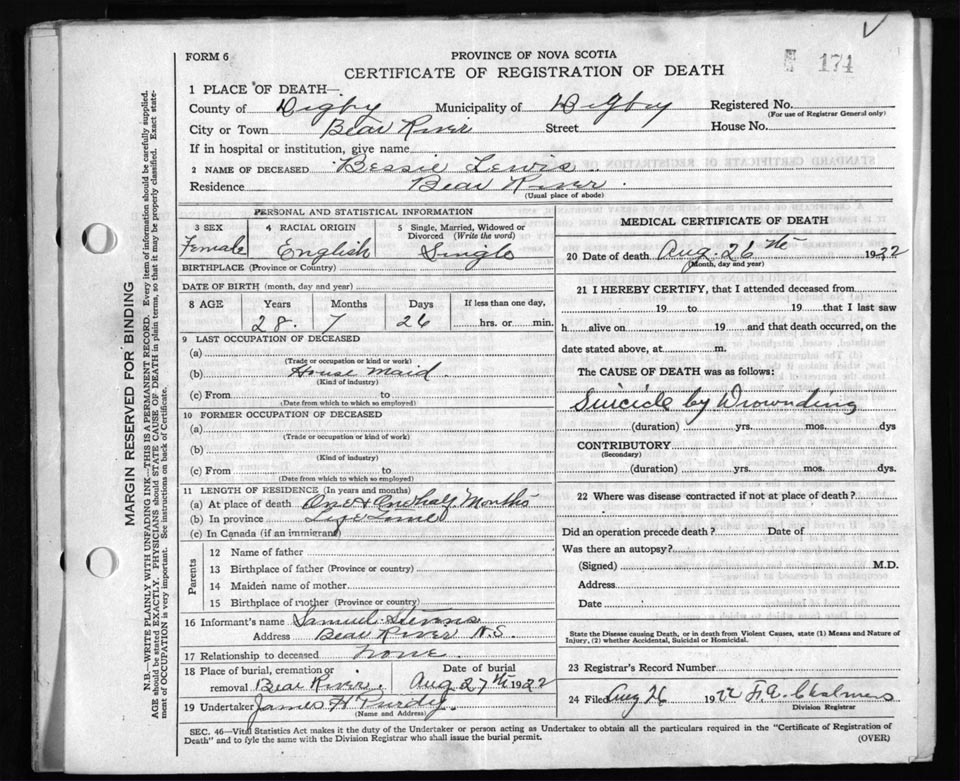 FORM 6
PROVINCE OF NOVA SCOTIA
174
CERTIFICATE OF REGISTRATION OF DEATH
1 PLACE OF DEATH—
County of Digby Municipality of Digby Registered No.
(For use of Registrar General only)
City or Town Bear River Street House No.
If in hospital or institution, give name
2 NAME OF DECEASED Bessie Lewis
Residence Bear River
(Usual place of abode)
MARGIN RESERVED FOR BINDING
N.B.—WRITE PLAINLY WITH UNFADING INK—THIS IS A PERMANENT RECORD. Every item of information should be carefully supplied.
AGE should be stated EXACTLY. PHYSICIANS should STATE CAUSE OF DEATH in plain terms, so that it may be properly classified. Exact state-
ment of OCCUPATION is very important. See instructions on back of Certificate.
PERSONAL AND STATISTICAL INFORMATION
3 SEX 4 RACIAL ORIGIN 5 Single, Married, Widowed or
Divorced (Write the word)
Female English Single
BIRTHPLACE (Province or Country)
DATE OF BIRTH (month, day and year)
8 AGE Years Months Days If less than one day,
28 7 26 hrs. or min.
9 LAST OCCUPATION OF DECEASED
(a)
(Trade or occupation or kind or work)
(b) House Maid
(Kind of industry)
(c) From to
(Date from which to which so employed)
10 FORMER OCCUPATION OF DECEASED
(a)
(Trade or occupation or kind or work)
(b)
(Kind of industry)
(c) From to
(Date from which to which so employed)
11 LENGTH OF RESIDENCE (In years and months)
(a) At place of death One & One half Months
(b) In province Life Time
(c) In Canada (if an immigrant)
Parents
12 Name of father
13 Birthplace of father (Province or country)
14 Maiden name of mother
15 Birthplace of mother (Province or country)
16 Informant's name Samuel Stevens
Address Bear River N.S.
17 Relationship to deceased None
18 Place of burial, cremation or Date of burial
removal Bear River Aug 27th 1922
19 Undertaker James H Purdy
(Name and Address)
MEDICAL CERTIFICATE OF DEATH
20 Date of death Aug. 26th 1922
(Month, day and year)
21 I HEREBY CERTIFY, that I attended deceased from
19 to 19 that I last saw
h alive on 19 and that death occurred, on the
date stated above, at m.
The CAUSE OF DEATH was as follows:
Suicide by Drownding
(duration) yrs. mos. dys
CONTRIBUTORY
(Secondary)
(duration) yrs. mos. dys.
22 Where was disease contracted if not at place of death?
Did an operation precede death? Date of
Was there an autopsy?
(Signed) M.D.
Address
Date
State the Disease causing Death, or in death from Violent Causes, state (1) Means and Nature of
Injury, (2) whether Accidental, Suicidal or Homicidal.
23 Registrar's Record Number
24 Filed Aug 26 1922 Chalmers
Division Registrar
SEC. 46—Vital Statistics Act makes it the duty of the Undertaker or person acting as Undertaker to obtain all the particulars required in the "Certificate of Registration of
Death" and to fyle the same with the Division Registrar who shall issue the burial permit. (OVER)